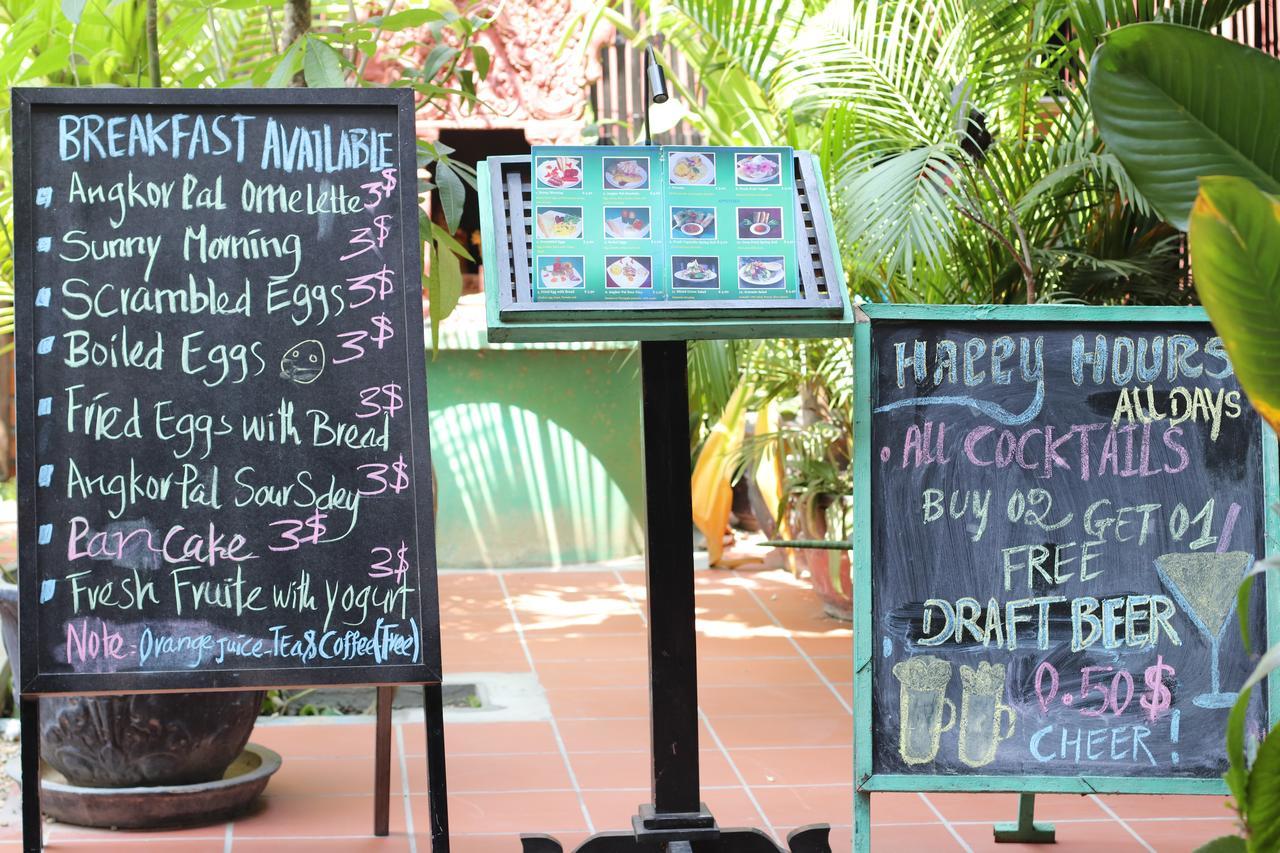 BREAKFAST AVAILABLE
Angkor Pal Omelette 3$
Sunny Morning 3$
Scrambled Eggs 3$
Boiled Eggs 3$
Fried Eggs with Bread 3$
Angkor Pal Sour Sdey 3$
Pancake 3$
Fresh Fruite with yogurt 3$
Note: Orange juice-Tea & Coffee (Free)
HAPPY HOURS
ALL DAYS
ALL COCKTAILS
BUY 02 GET 01
FREE
DRAFT BEER
0.50$
CHEER!